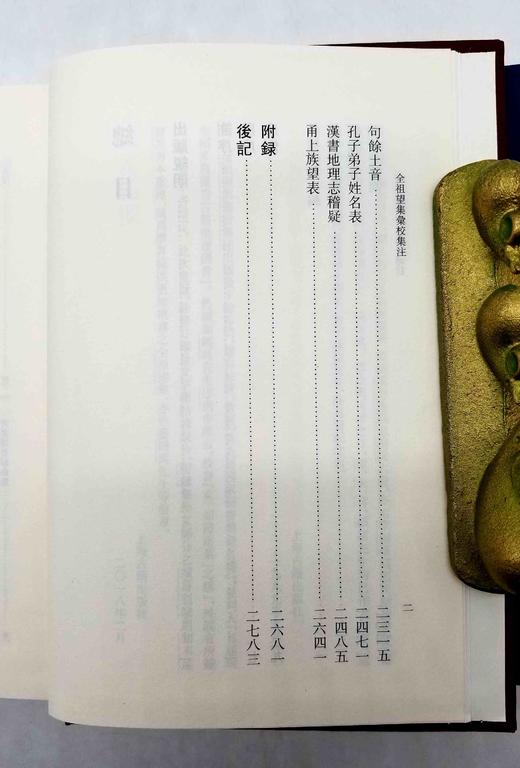 全祖望集彙校集注
二
句餘土音……二三一五
孔子弟子姓名表……二四七一
漢書地理志稽疑……二四八五
甬上族望表……二六四一
附録……二六八一
後記……二七八三